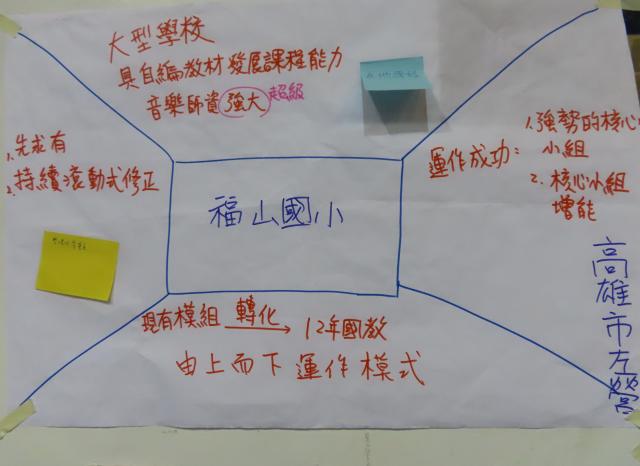 大型學校
具自編教材發展課程能力
音樂師資強大 超級
1. 先求有
2. 持續滾動式修正
運作成功：
1. 強勢的核心
小組
2. 核心小組
增能
福山國小
現有模組 轉化→ 12年國教
由上而下運作模式
高雄市左營